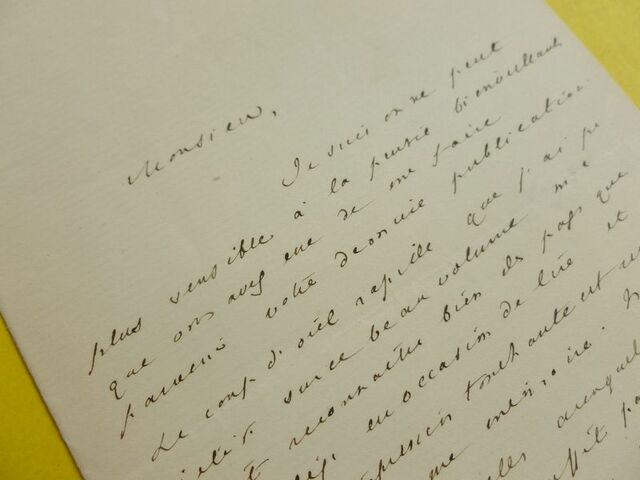 Monsieur,
Je suis on ne peut
plus sensible à la pensée bienveillante
que vous avez eue de me faire
parvenir votre dernière publication.
Le coup d'œil rapide que j'ai pu
jeter sur ce beau volume m'a
fait reconnaître bien des pages que
j'ai déjà eu occasion de lire et
impression touchante et
mémoire.